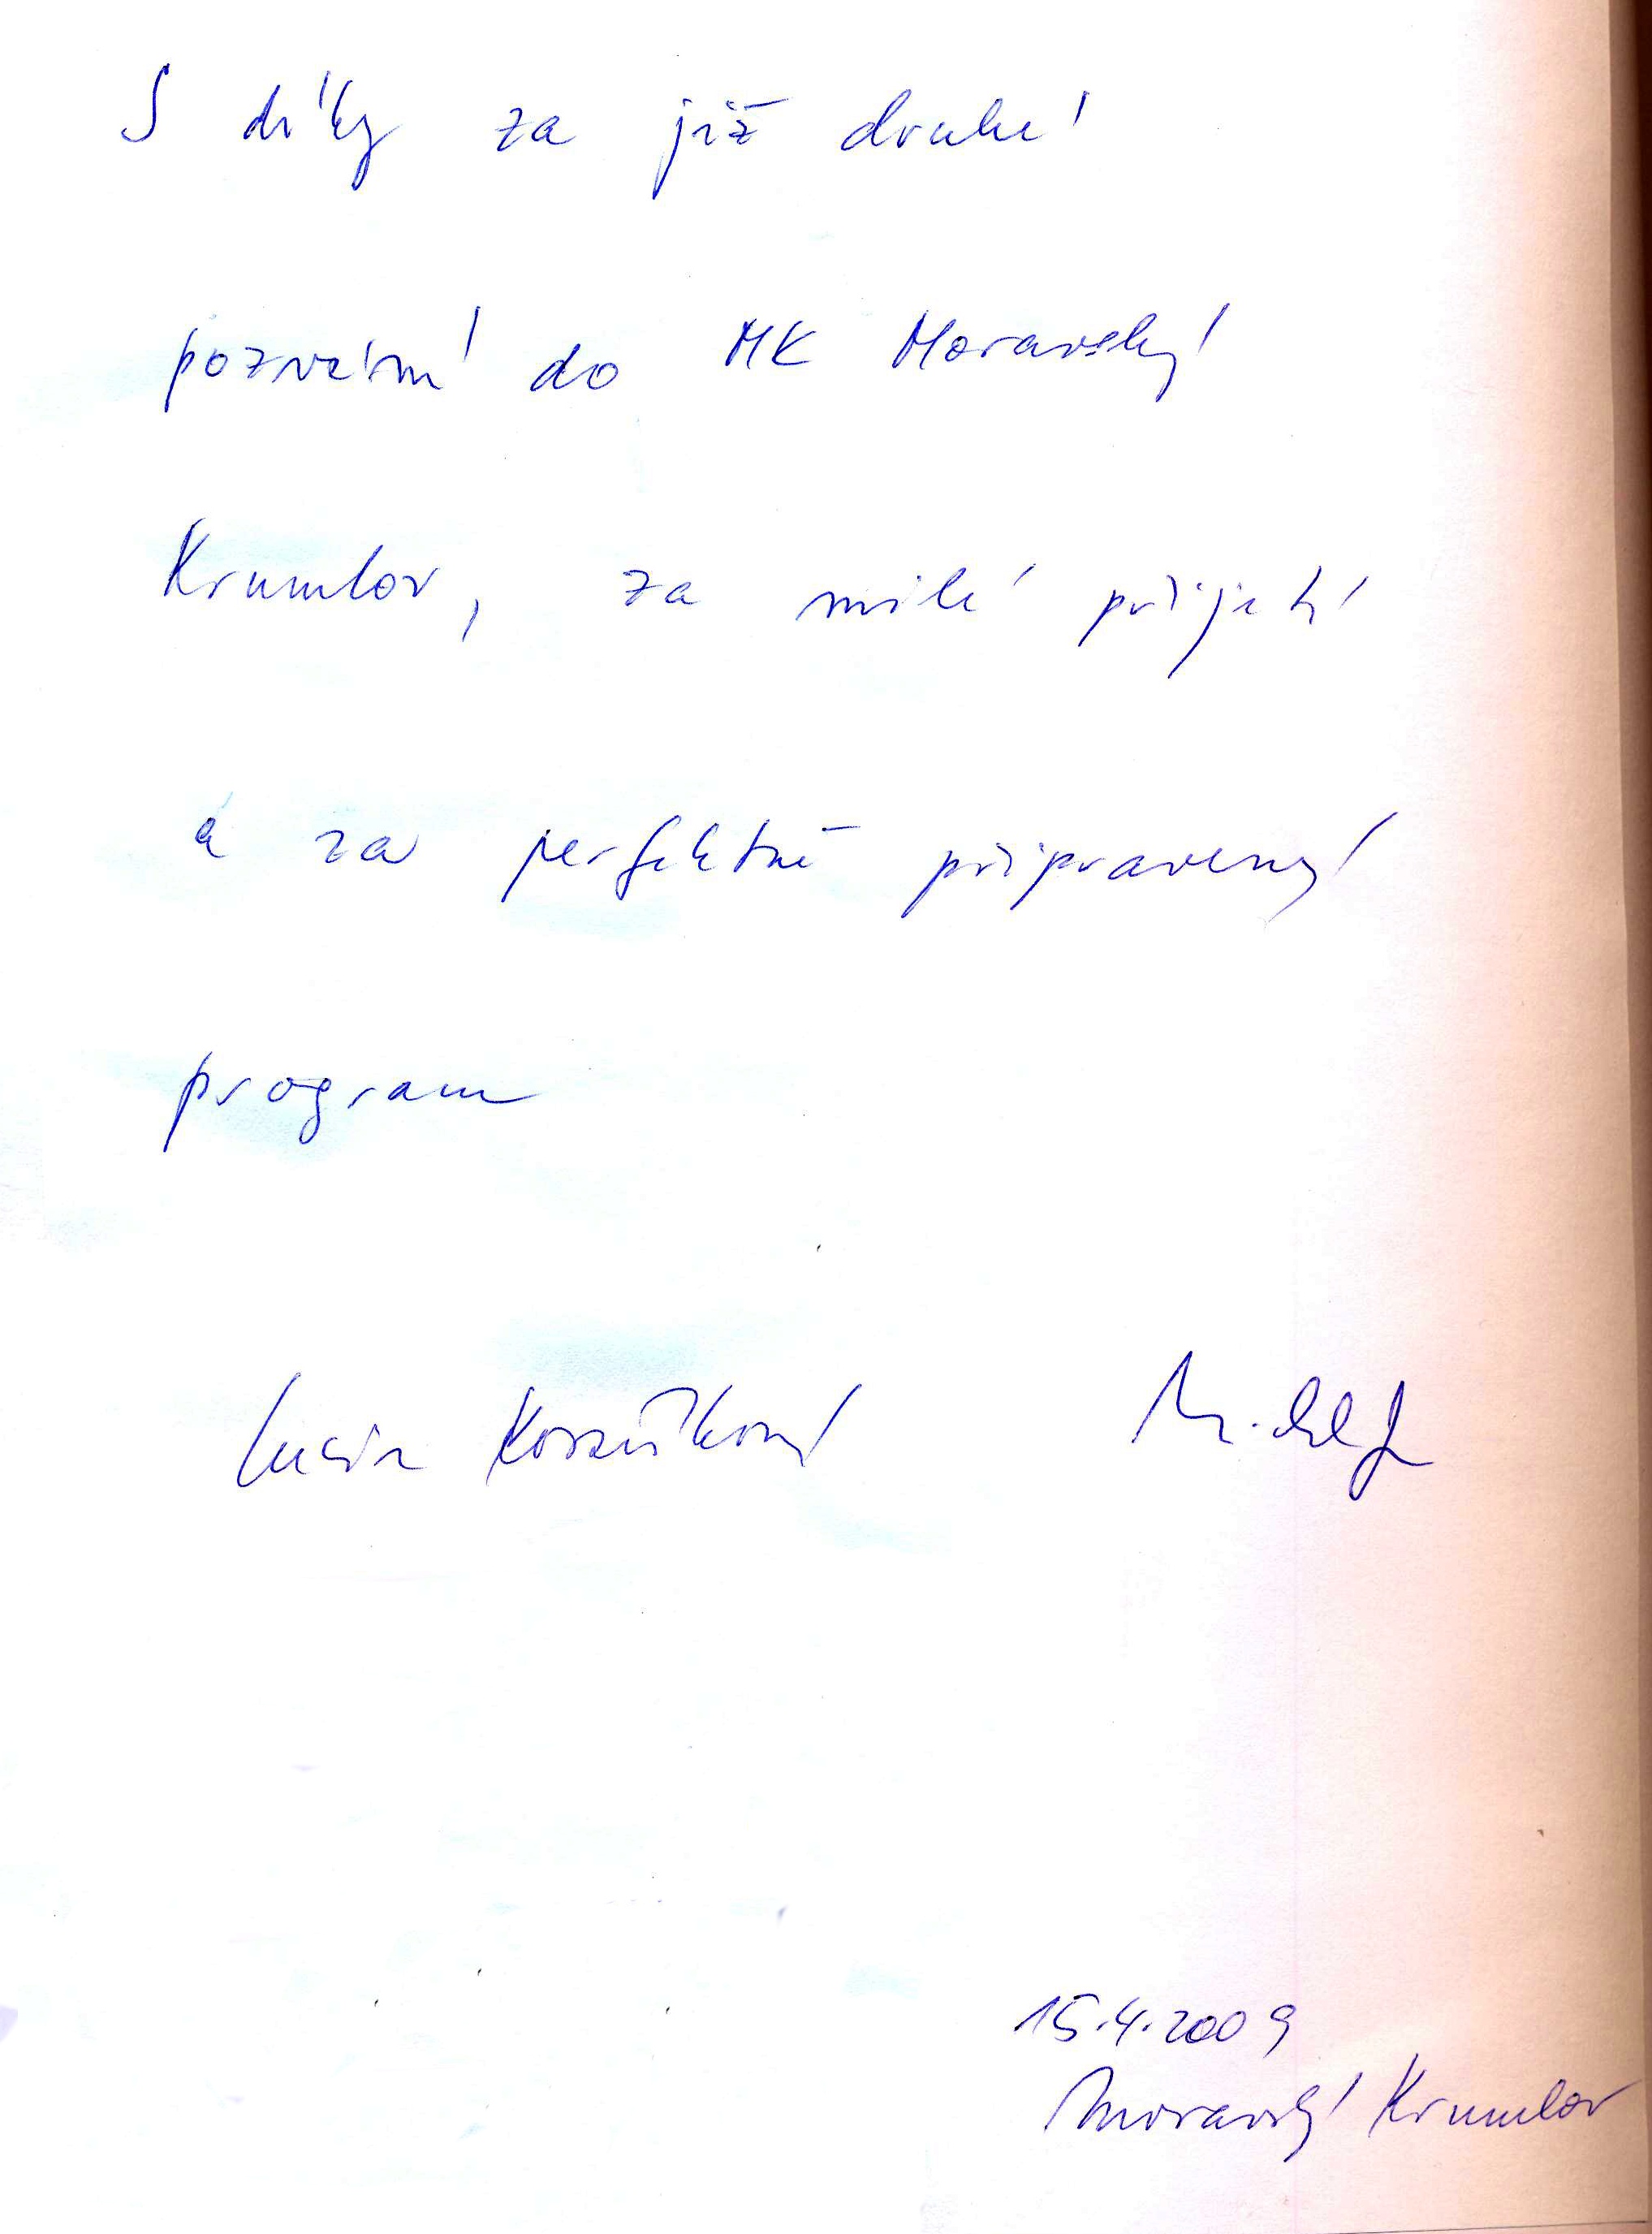 S díky za již druhé
pozvání do MK Moravský
Krumlov, za milé přijetí
a za perfektně připravený
program
Lucie
15.4.2009
Moravský Krumlov